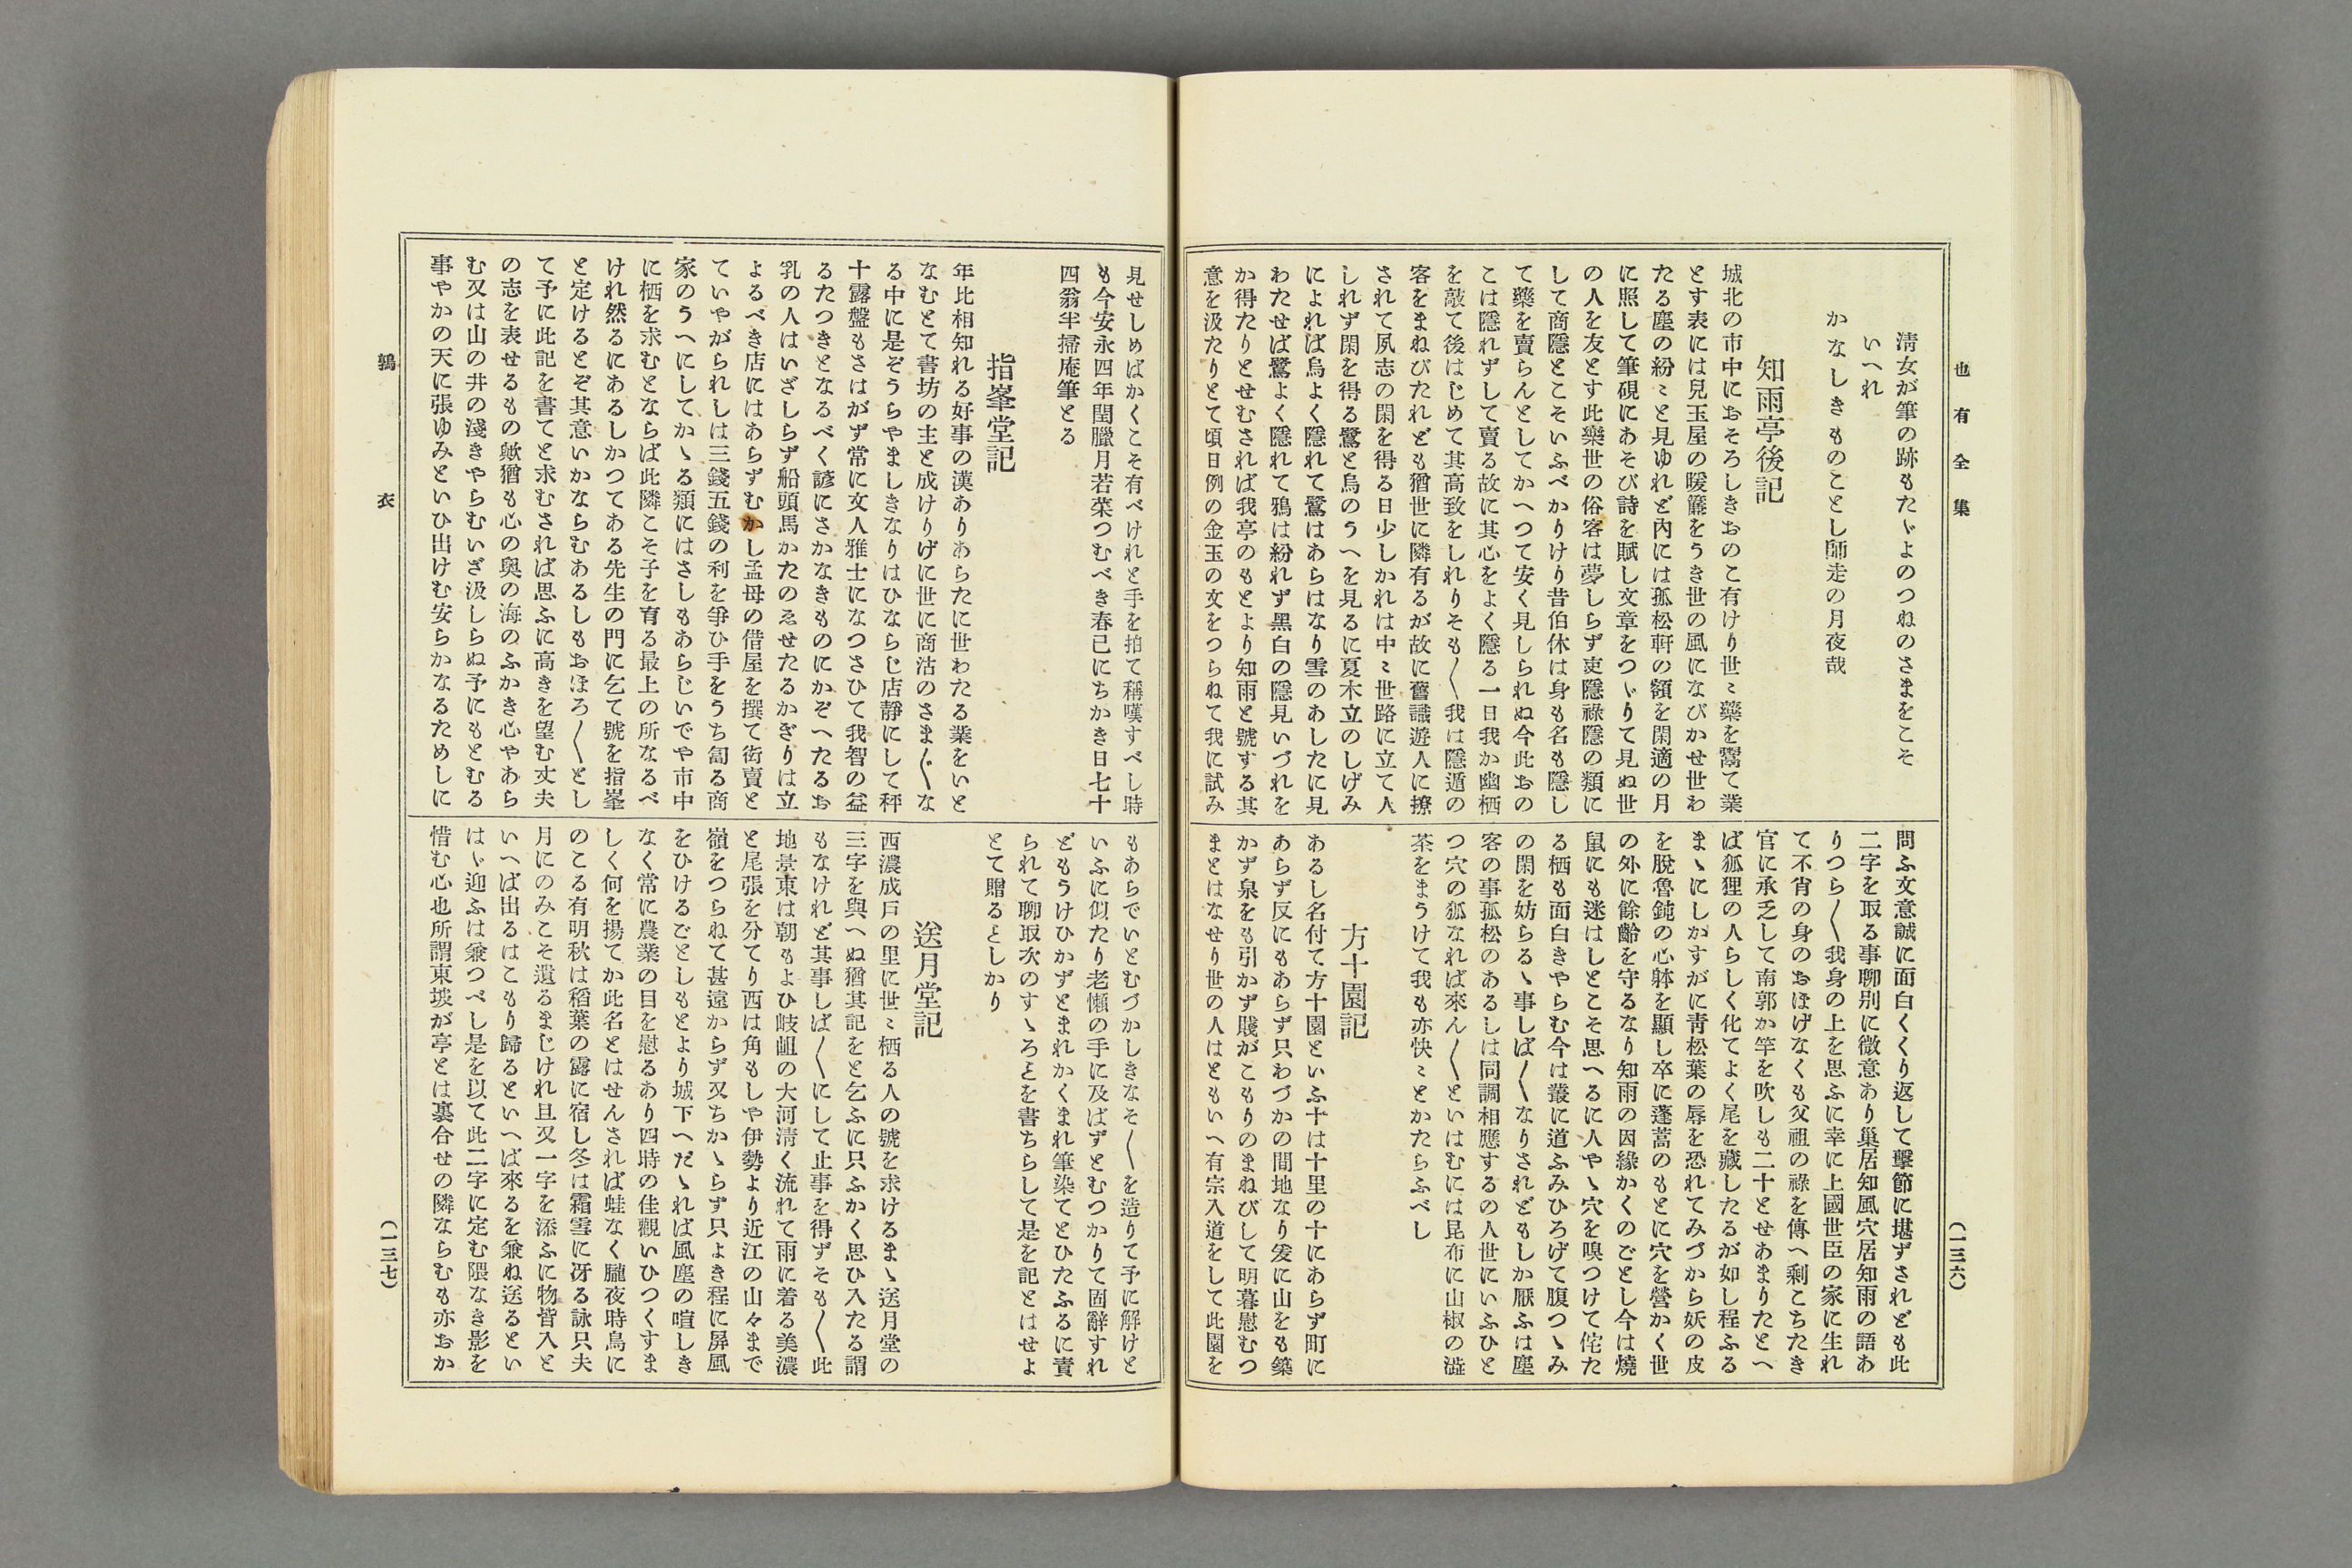 也有全集
(一三六)
淸女が筆の跡もたゞよのつねのさまをこそ
いへれ
かなしきものことし師走の月夜哉
知雨亭後記
城北の市中におそろしきおのこ有けり世〻藥を鬻て業
とす表には兒玉屋の暖簾をうき世の風になびかせ世わ
たる塵の紛〻と見ゆれど內には孤松軒の額を閑適の月
に照して筆硯にあそび詩を賦し文章をつゞりて見ぬ世
の人を友とす此樂世の俗客は夢しらず吏隱祿隱の類に
して商隱とこそいふべかりけり昔伯休は身も名も隱し
て藥を賣らんとしてかへつて安く見しられぬ今此おの
こは隱れずして賣る故に其心をよく隱る一日我か幽栖
を敲て後はじめて其高致をしれりそも〱我は隱遁の
客をまねびたれども猶世に隣有るが故に舊識遊人に撩
されて夙志の閑を得る日少しかれは中〻世路に立て人
しれず閑を得る鷺と烏のうへを見るに夏木立のしげみ
によれば烏よく隱れて鷺はあらはなり雪のあしたに見
わたせば鷺よく隱れて鴉は紛れず黑白の隱見いづれを
か得たりとせむされば我亭のもとより知雨と號する其
意を汲たりとて頃日例の金玉の文をつらねて我に試み
問ふ文意誠に面白くくり返して擊節に堪ずされども此
二字を取る事聊別に微意あり巢居知風穴居知雨の語あ
りつら〱我身の上を思ふに幸に上國世臣の家に生れ
て不肖の身のおほげなくも父祖の祿を傳へ剩こちたき
官に承乏して南郭か竽を吹しも二十とせあまりたとへ
ば狐狸の人らしく化てよく尾を藏したるが如し程ふる
まゝにしかすがに靑松葉の辱を恐れてみづから妖の皮
を脫魯鈍の心躰を顯し卒に蓬蒿のもとに穴を營かく世
の外に餘齡を守るなり知雨の因緣かくのごとし今は燒
鼠にも迷はしとこそ思へるに人やゝ穴を嗅つけて侘た
る栖も面白きやらむ今は叢に道ふみひろげて腹つゝみ
の閑を妨らるゝ事しば〱なりされどもしか厭ふは塵
客の事孤松のあるしは同調相應するの人世にいふひと
つ穴の狐なれば來ん〱といはむには昆布に山椒の澁
茶をまうけて我も亦快〻とかたらふべし
方十園記
あるし名付て方十園といふ十は十里の十にあらず町に
あらず反にもあらず只わづかの間地なり爰に山をも築
かず泉をも引かず賤がこもりのまねびして明暮慰むつ
まとはなせり世の人はともいへ有宗入道をして此園を
鶉衣
(一三七)
見せしめばかくこそ有べけれと手を拍て稱嘆すべし時
も今安永四年閏臘月若菜つむべき春已にちかき日七十
四翁半掃庵筆とる
指峯堂記
年比相知れる好事の漢ありあらたに世わたる業をいと
なむとて書坊の主と成けりげに世に商沽のさま〲な
る中に是ぞうらやましきなりはひならじ店靜にして秤
十露盤もさはがず常に文人雅士になつさひて我智の益
るたつきとなるべく諺にさかなきものにかぞへたるお
乳の人はいざしらず船頭馬かたのゑせたるかぎりは立
よるべき店にはあらずむかし孟母の借屋を撰て衒賣と
ていやがられしは三錢五錢の利を爭ひ手をうち訇る商
家のうへにしてかゝる類にはさしもあらじいでや市中
に栖を求むとならば此隣こそ子を育る最上の所なるべ
けれ然るにあるしかつてある先生の門に乞て號を指峯
と定けるとぞ其意いかならむあるしもおほろ〱とし
て予に此記を書てと求むされば思ふに高きを望む丈夫
の志を表せるもの歟猶も心の奧の海のふかき心やあら
む又は山の井の淺きやらむいざ汲しらぬ予にもとむる
事やかの天に張ゆみといひ出けむ安らかなるためしに
もあらでいとむづかしきなそ〱を造りて予に解けと
いふに似たり老懶の手に及ばずとむつかりて固辭すれ
どもうけひかずとまれかくまれ筆染てとひたふるに責
られて聊取次のすゝろとを書ちらして是を記とはせよ
とて贈るとしかり
送月堂記
西濃成戶の里に世〻栖る人の號を求けるまゝ送月堂の
三字を與へぬ猶其記をと乞ふに只ふかく思ひ入たる謂
もなけれど其事しば〱にして止事を得ずそも〱此
地景東は朝もよひ岐岨の大河淸く流れて雨に着る美濃
と尾張を分てり西は角もしや伊勢より近江の山々まで
嶺をつらねて甚遠からず又ちかゝらず只よき程に屛風
をひけるごとしもとより城下へだゝれば風塵の喧しき
なく常に農業の目を慰るあり四時の佳觀いひつくすま
しく何を揚てか此名とはせんされば蛙なく朧夜時鳥に
のこる有明秋は稻葉の露に宿し冬は霜雪に冴る詠只夫
月にのみこそ遺るまじけれ且又一字を添ふに物皆入と
いへば出るはこもり歸るといへば來るを兼ね送るとい
はゞ迎ふは兼つべし是を以て此二字に定む隈なき影を
惜む心也所謂東坡が亭とは裏合せの隣ならむも亦おか